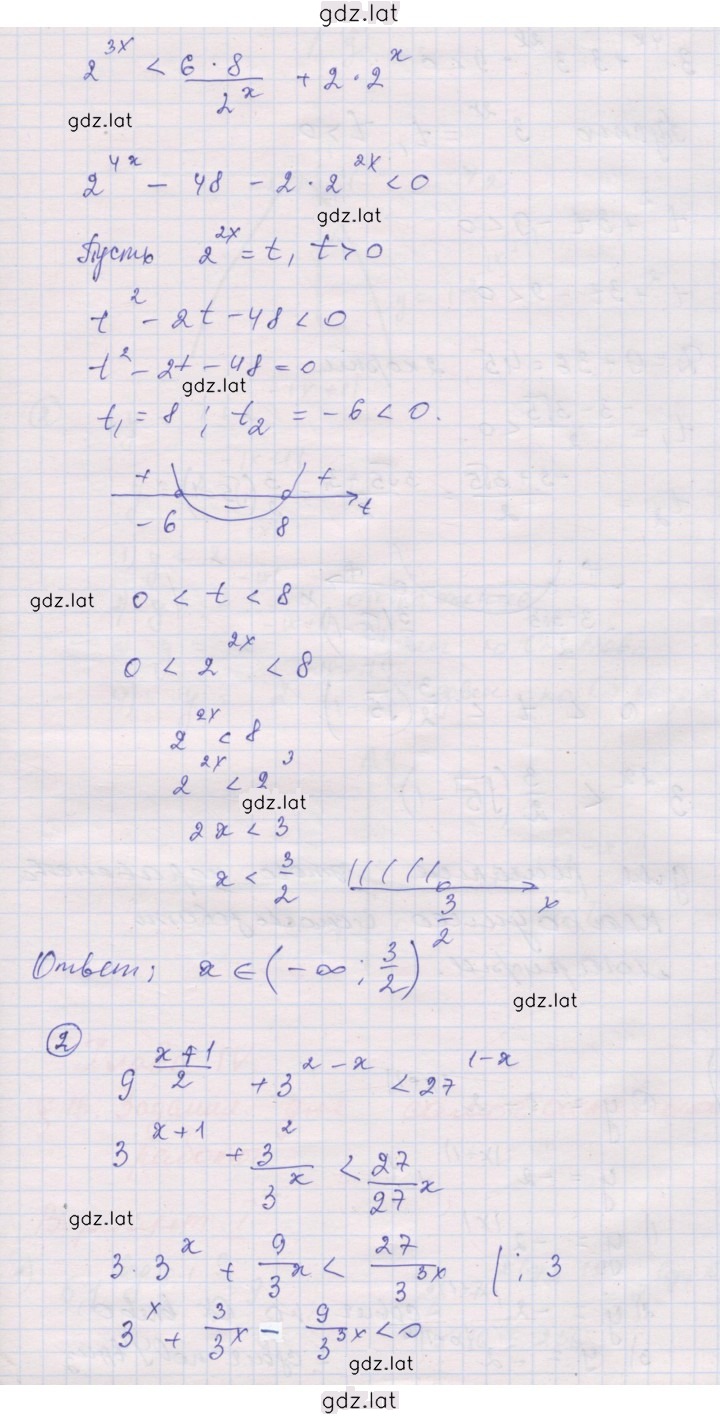 gdz.lat
2^{3x} < \frac{6 · 8}{2^x} + 2 · 2^x
gdz.lat
2^{4x} - 48 - 2 · 2^{2x} < 0
gdz.lat
Пусть 2^{2x} = t, t > 0
t^2 - 2t - 48 < 0
t^2 - 2t - 48 = 0
gdz.lat
t_1 = 8 ; t_2 = -6 < 0.
+ - + t
-6 8
gdz.lat 0 < t < 8
0 < 2^{2x} < 8
2^{2x} < 8
2^{2x} < 2^3
gdz.lat
2x < 3
x < \frac{3}{2} \frac{3}{2} x
Ответ: x ∈ (-∞; \frac{3}{2})
gdz.lat
2
9^{\frac{x+1}{2}} + 3^{2-x} < 27^{1-x}
3^{x+1} + \frac{3^2}{3^x} < \frac{27}{27^x}
gdz.lat
3 · 3^x + \frac{9}{3^x} < \frac{27}{3^{3x}} | : 3
3^x + \frac{3}{3^x} - \frac{9}{3^{3x}} < 0
gdz.lat
gdz.lat